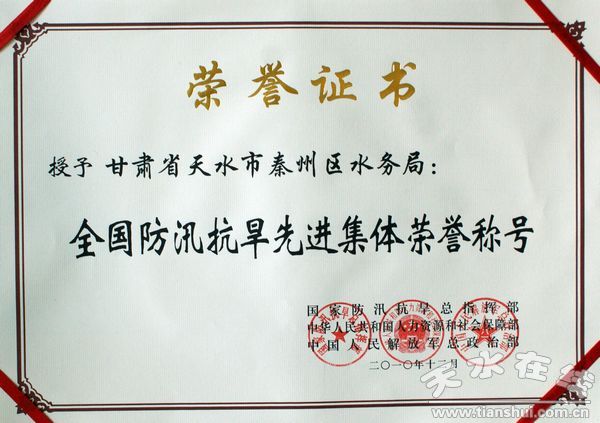 荣誉证书
授予 甘肃省天水市秦州区水务局：
全国防汛抗旱先进集体荣誉称号
国家防汛抗旱总指挥部
中华人民共和国人力资源和社会保障部
中国人民解放军总政治部
二〇一〇年十二月
天水在线
www.tianshui.com.cn